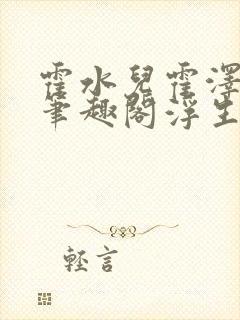 霍水兒霍澤
筆趣閣浮生
輕言